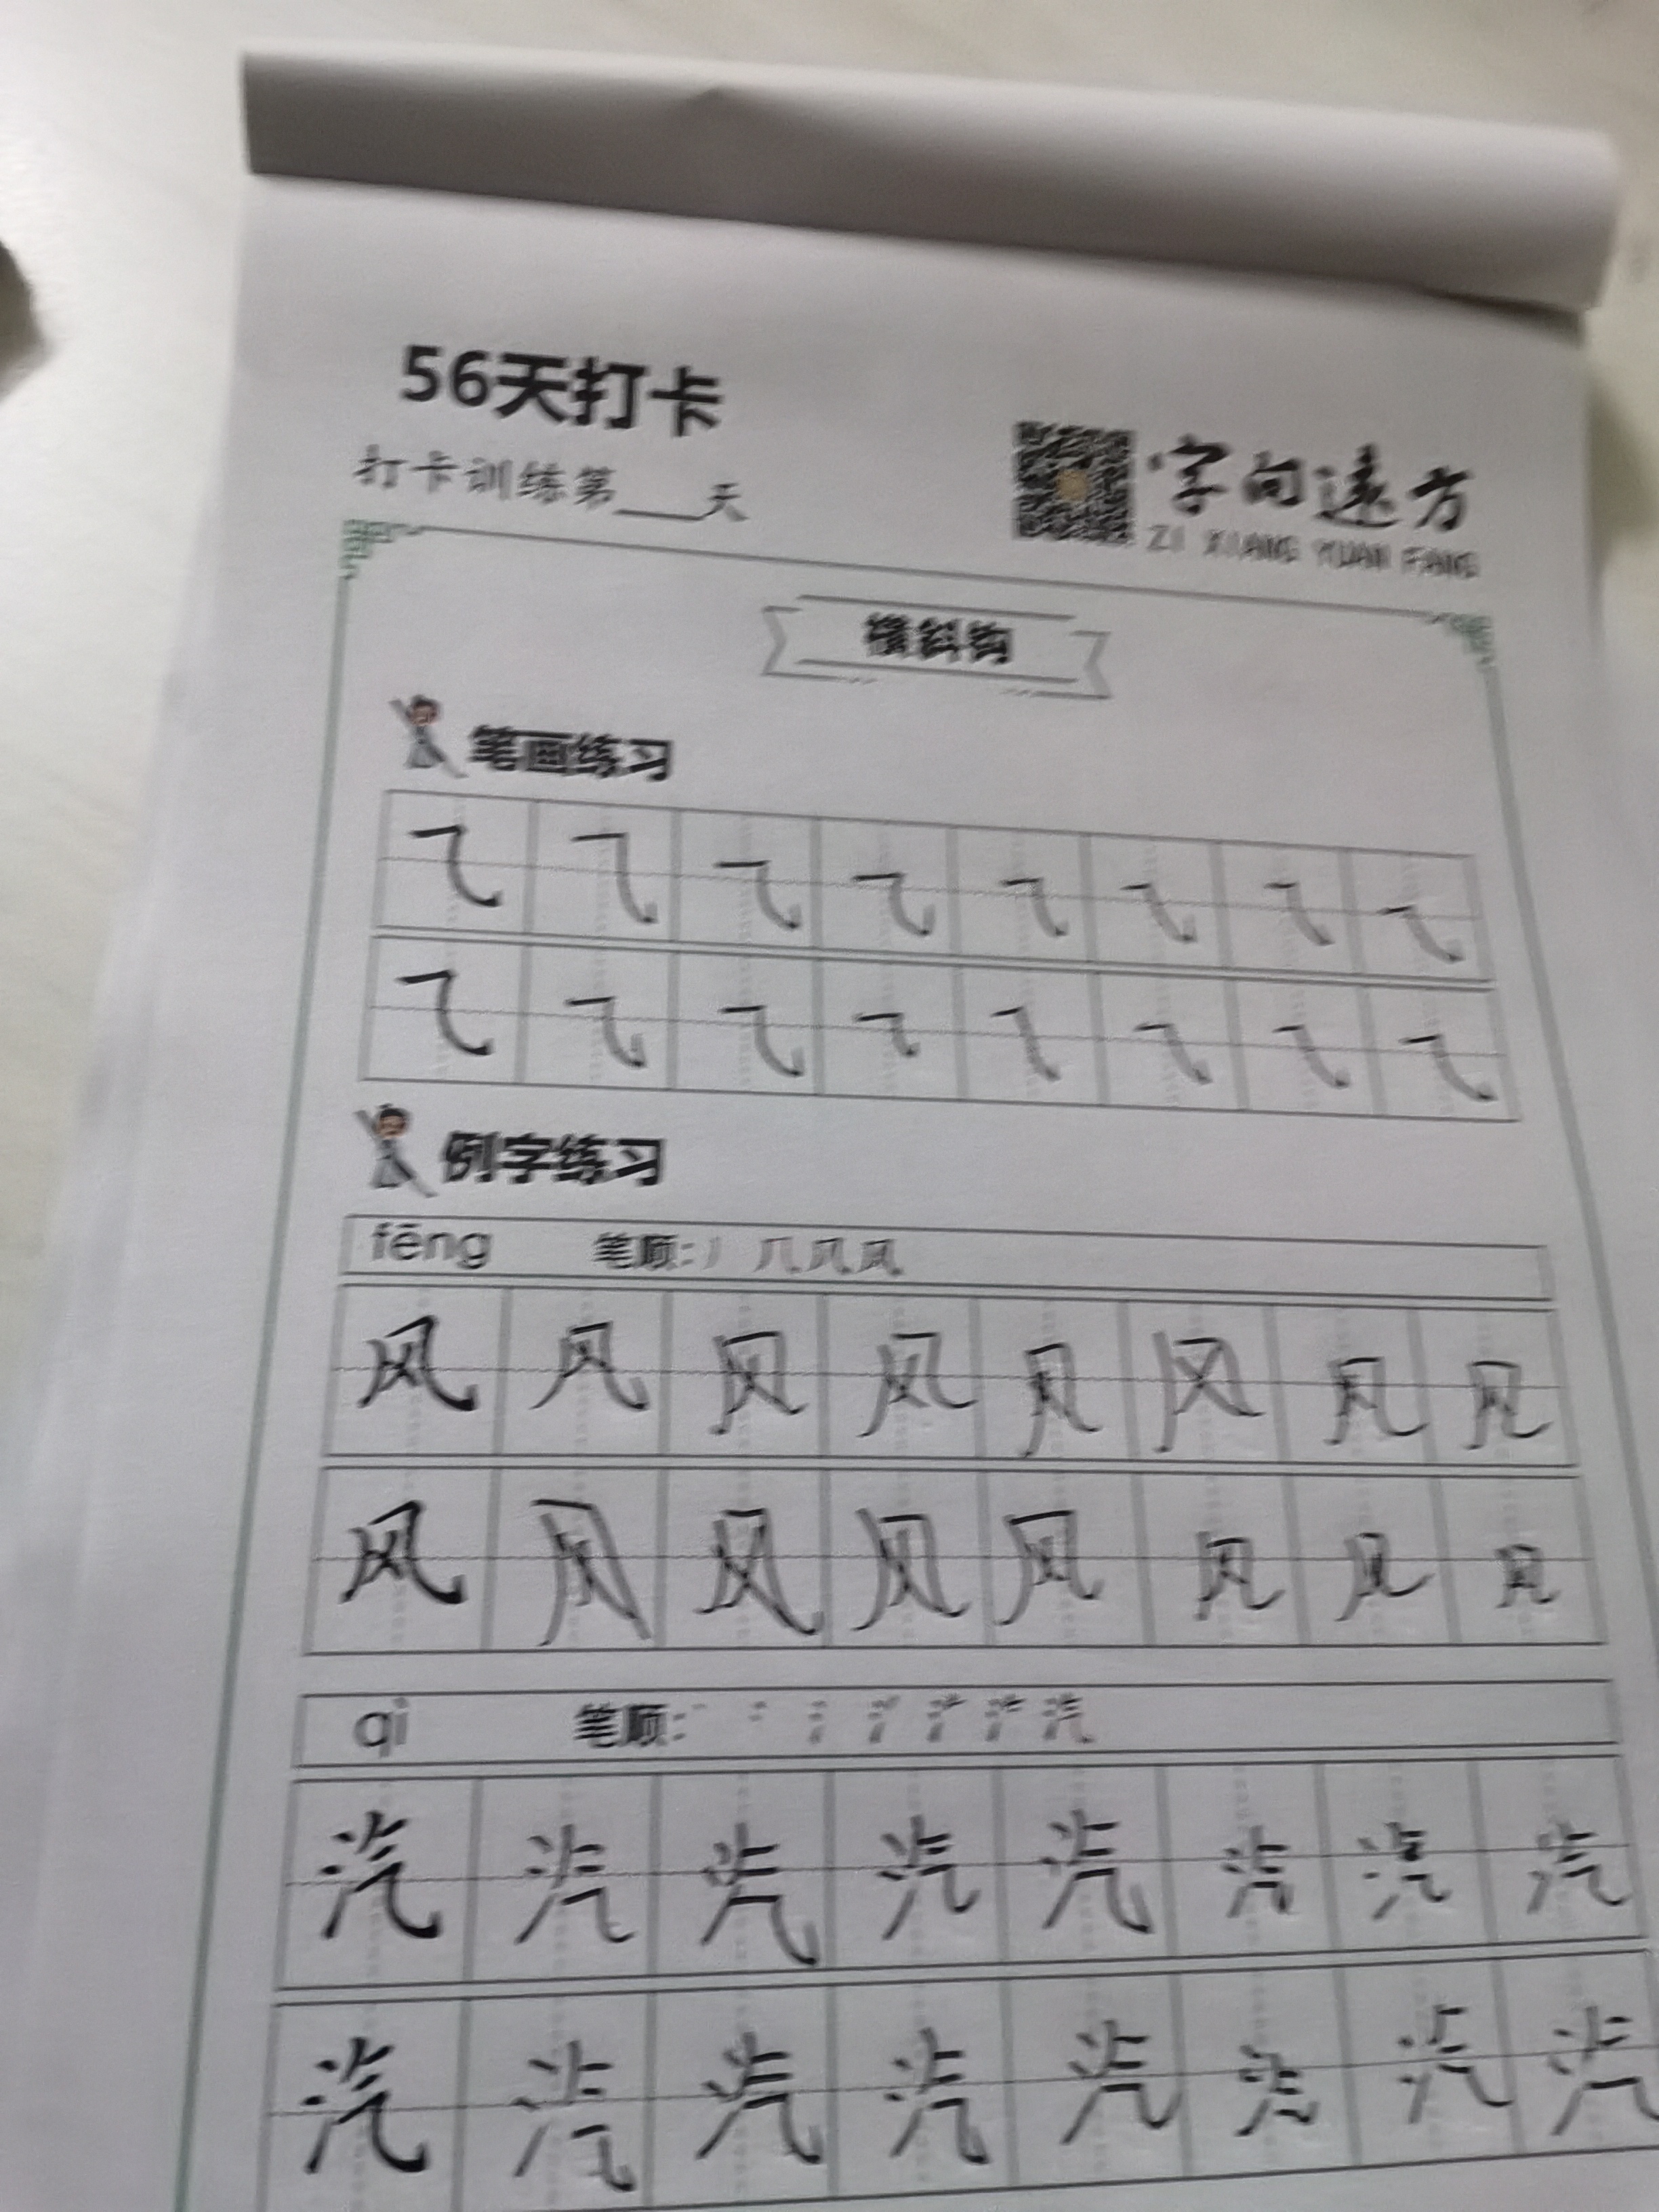 56天打卡
打卡训练第___天
字向远方
ZI XIANG YUAN FANG
横斜钩
笔画练习
㇈ ㇈ ㇈ ㇈ ㇈ ㇈ ㇈ ㇈
㇈ ㇈ ㇈ ㇈ ㇈ ㇈ ㇈ ㇈
例字练习
fēng 笔顺:
风 风 风 风 风 风 风 风
风 风 风 风 风 风 风 风
qì 笔顺:
汽 汽 汽 汽 汽 汽 汽 汽
汽 汽 汽 汽 汽 汽 汽 汽